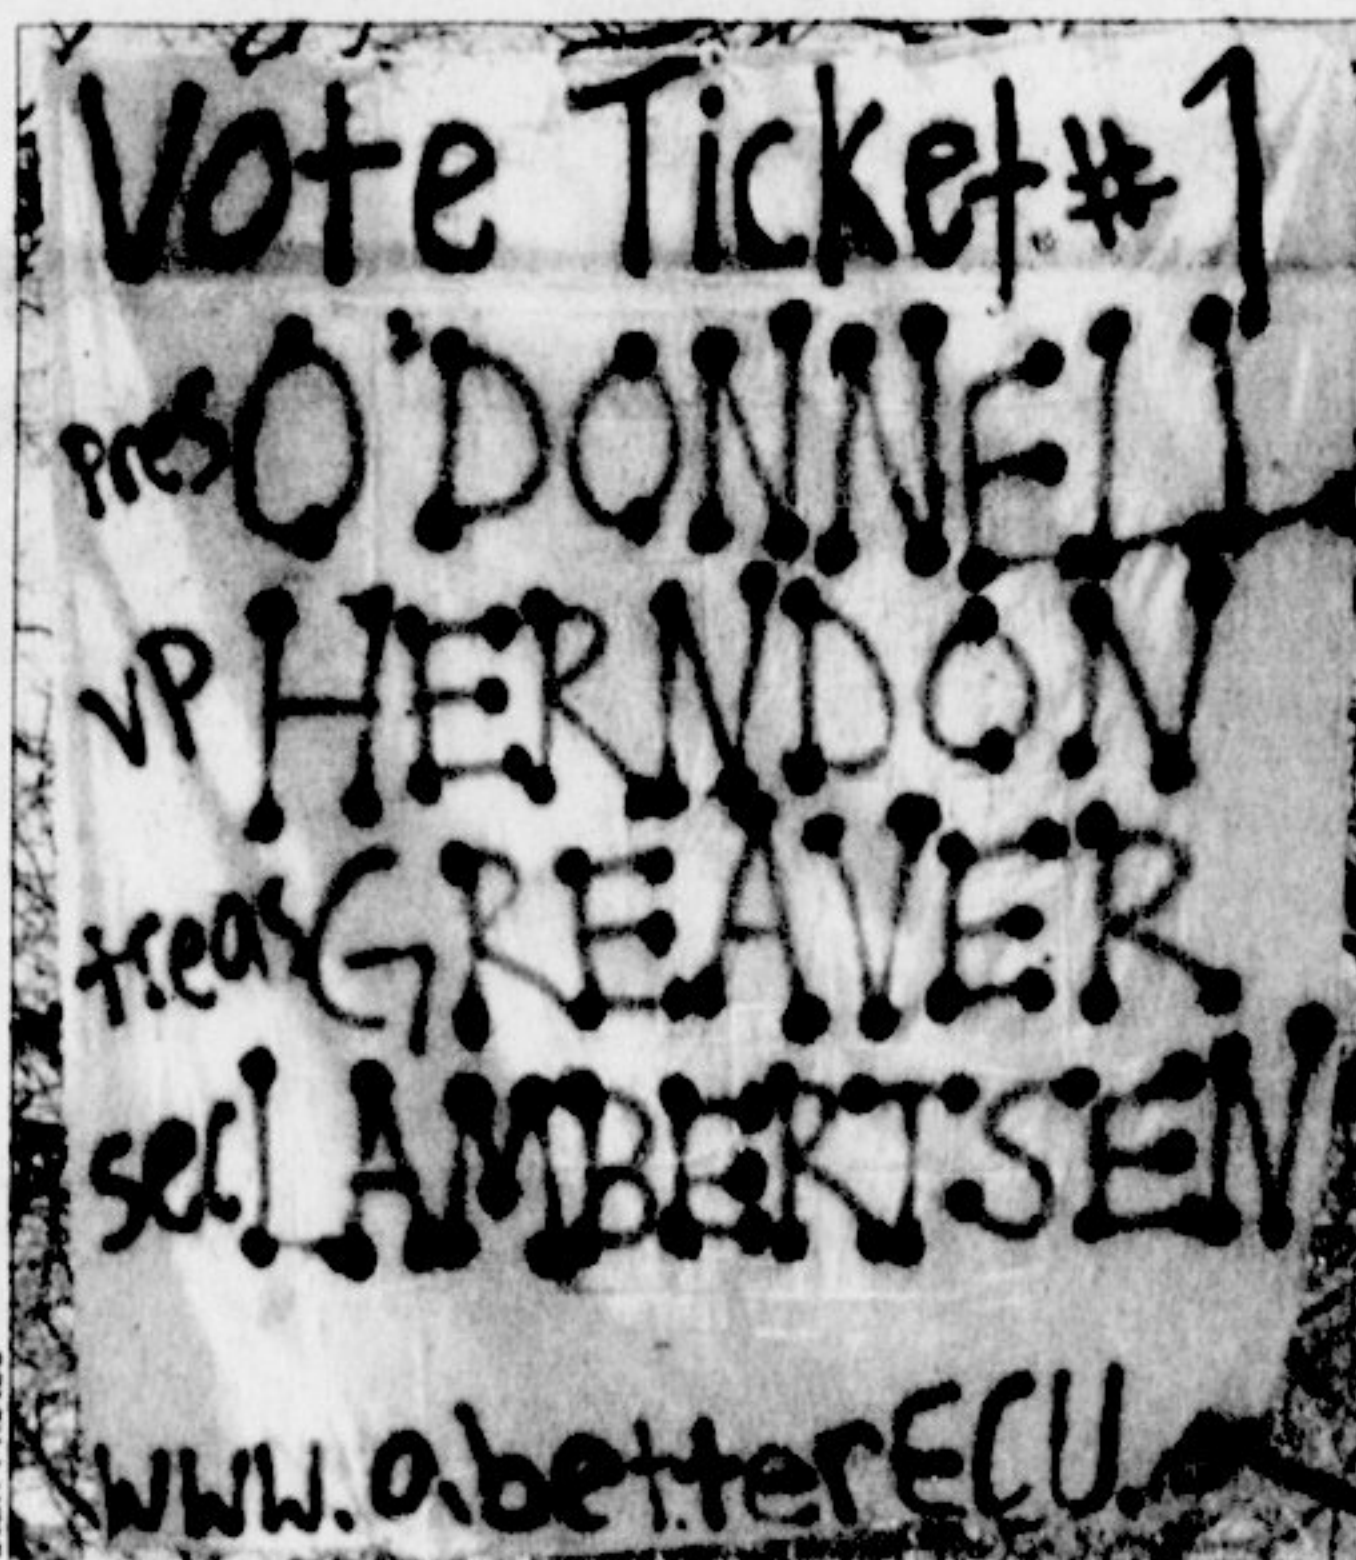 Vote Ticket #1
pres O'DONNELL
VP HERNDON
treas GREAVER
sec LAMBERTSEN
www.abetterECU.